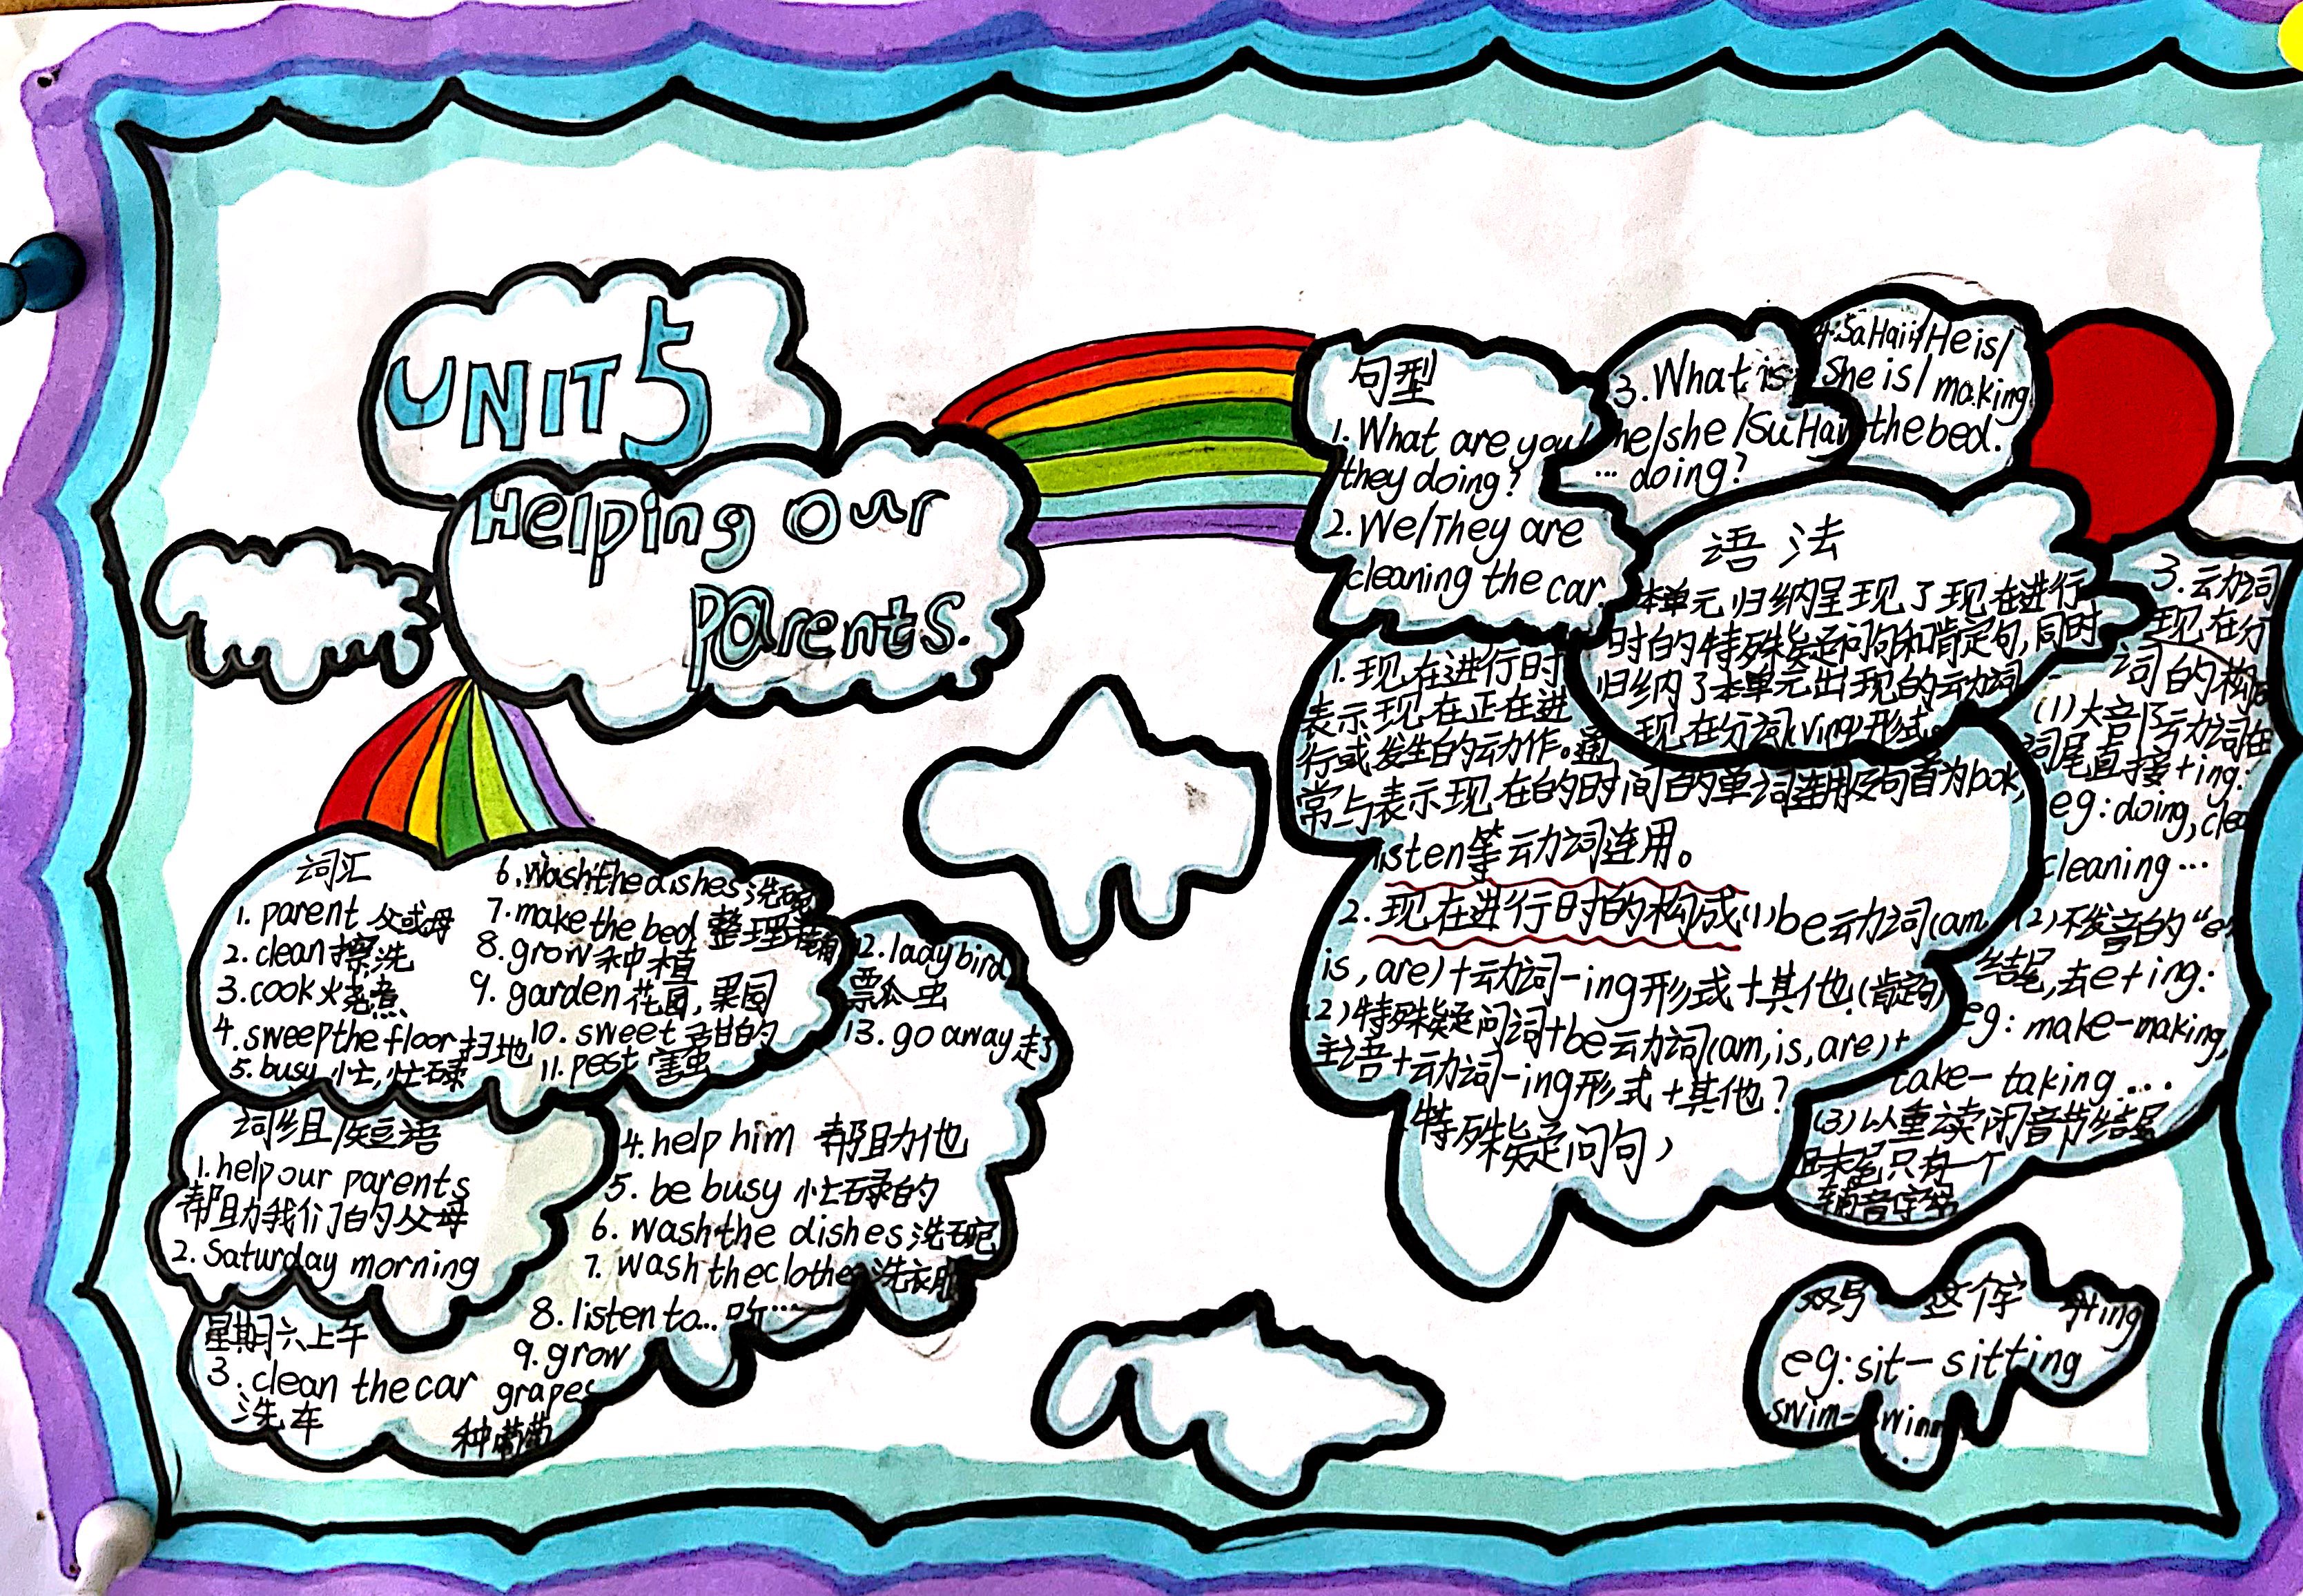 UNIT 5
Helping our
parents.
词汇
1. parent 父或母
2. clean 擦洗
3. cook 烧煮
4. sweep the floor 扫地
5. busy 忙,忙碌
6. wash the dishes 洗碗
7. make the bed 整理
8. grow 种植
9. garden 花园,果园
10. sweet 甜的
11. pest 害虫
12. ladybird
瓢虫
13. go away 走了
词组/短语
1. help our parents
帮助我们的父母
2. Saturday morning
星期六上午
3. clean the car
洗车
4. help him 帮助他
5. be busy 忙碌的
6. wash the dishes 洗碗
7. wash the clothes 洗衣服
8. listen to... 听…
9. grow
grapes
种葡萄
句型
1. What are you/
they doing?
2. We/They are
cleaning the car.
3. What is
he/she/Su Hai
... doing?
4. Su Hai is/He is/
She is/ making
the bed.
语法
本单元归纳呈现了现在进行
时的特殊疑问句和肯定句,同时
归纳了本单元出现的动词
现在分词(ving)形式。
1. 现在进行时
表示现在正在进
行或发生的动作。通
常与表示现在的时间的单词连用及句首为look,
listen等动词连用。
2. 现在进行时的构成(1)be动词(am,
is, are)+动词-ing形式+其他(肯定句)
(2)特殊疑问词+be动词(am, is, are)+
主语+动词-ing形式+其他?
特殊疑问句)
3. 动词
现在分
词的构成
(1)大部分动词在
词尾直接+ing:
eg: doing, clea
cleaning...
(2)不发音的"e"
结尾,去e+ing:
eg: make-making,
take- taking...
(3)以重读闭音节结尾
且末尾只有一个
辅音字母
双写 这个字 +ing
eg: sit- sitting
swim-